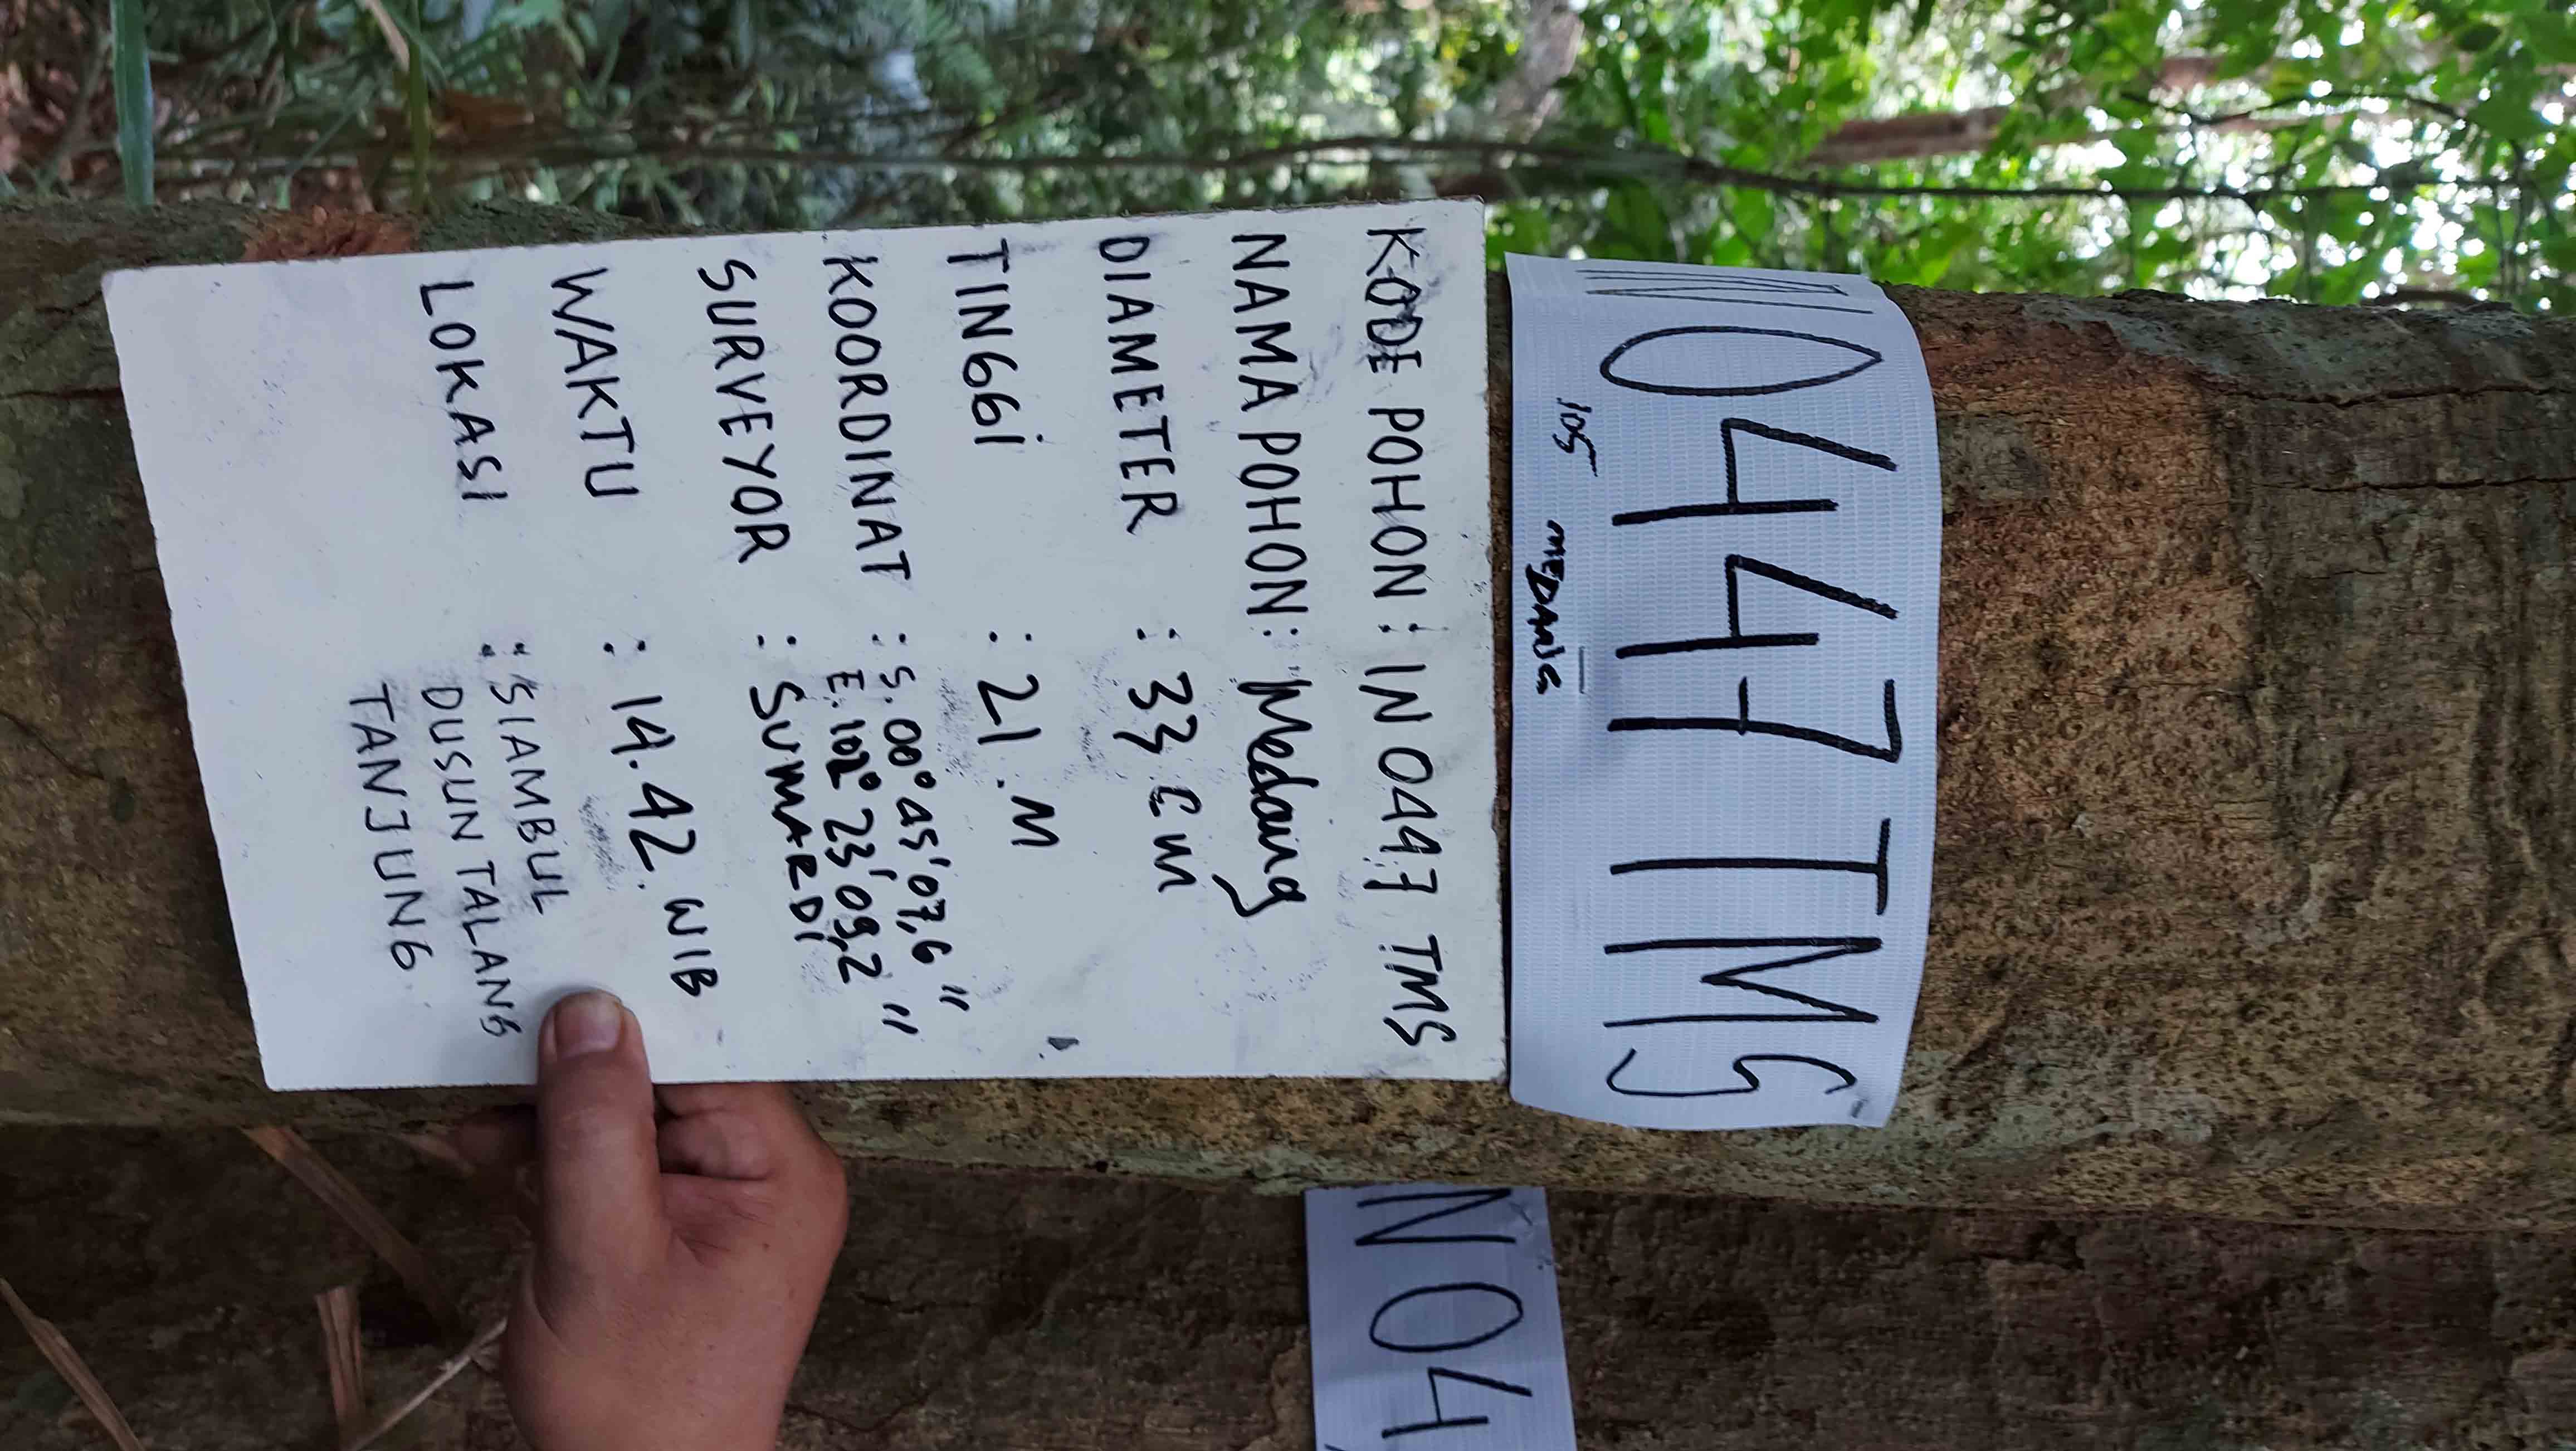 IN0447 TMS
105 MEDANG
N 04
KODE POHON : IN 0447 TMS
NAMA POHON : Medang
DIAMETER : 33 cm
TINGGI : 21 M
KOORDINAT : S. 00° 45' 07,6"
E. 102° 23' 09,2"
SURVEYOR : SUMARDI
WAKTU : 14.42 WIB
LOKASI : SIAMBUL
DUSUN TALANG
TANJUNG